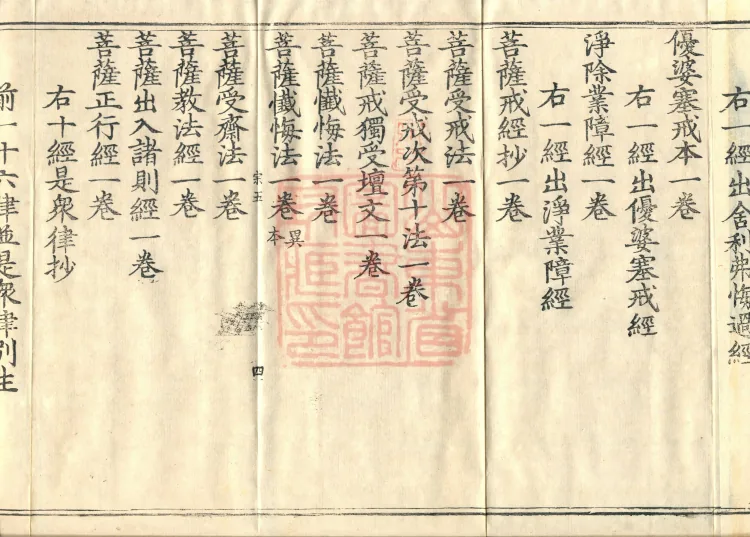 右一經出舍利弗悔過經
優婆塞戒本一卷
右一經出優婆塞戒經
淨除業障經一卷
右一經出淨業障經
菩薩戒經抄一卷
菩薩受戒法一卷
菩薩受戒次第十法一卷
菩薩戒獨受壇文一卷
菩薩懺悔法一卷
菩薩懺悔法一卷異本
宗五
四
菩薩受齋法一卷
菩薩教法經一卷
菩薩出入諸則經一卷
菩薩正行經一卷
右十經是眾律抄
前一十六律並是眾律別生